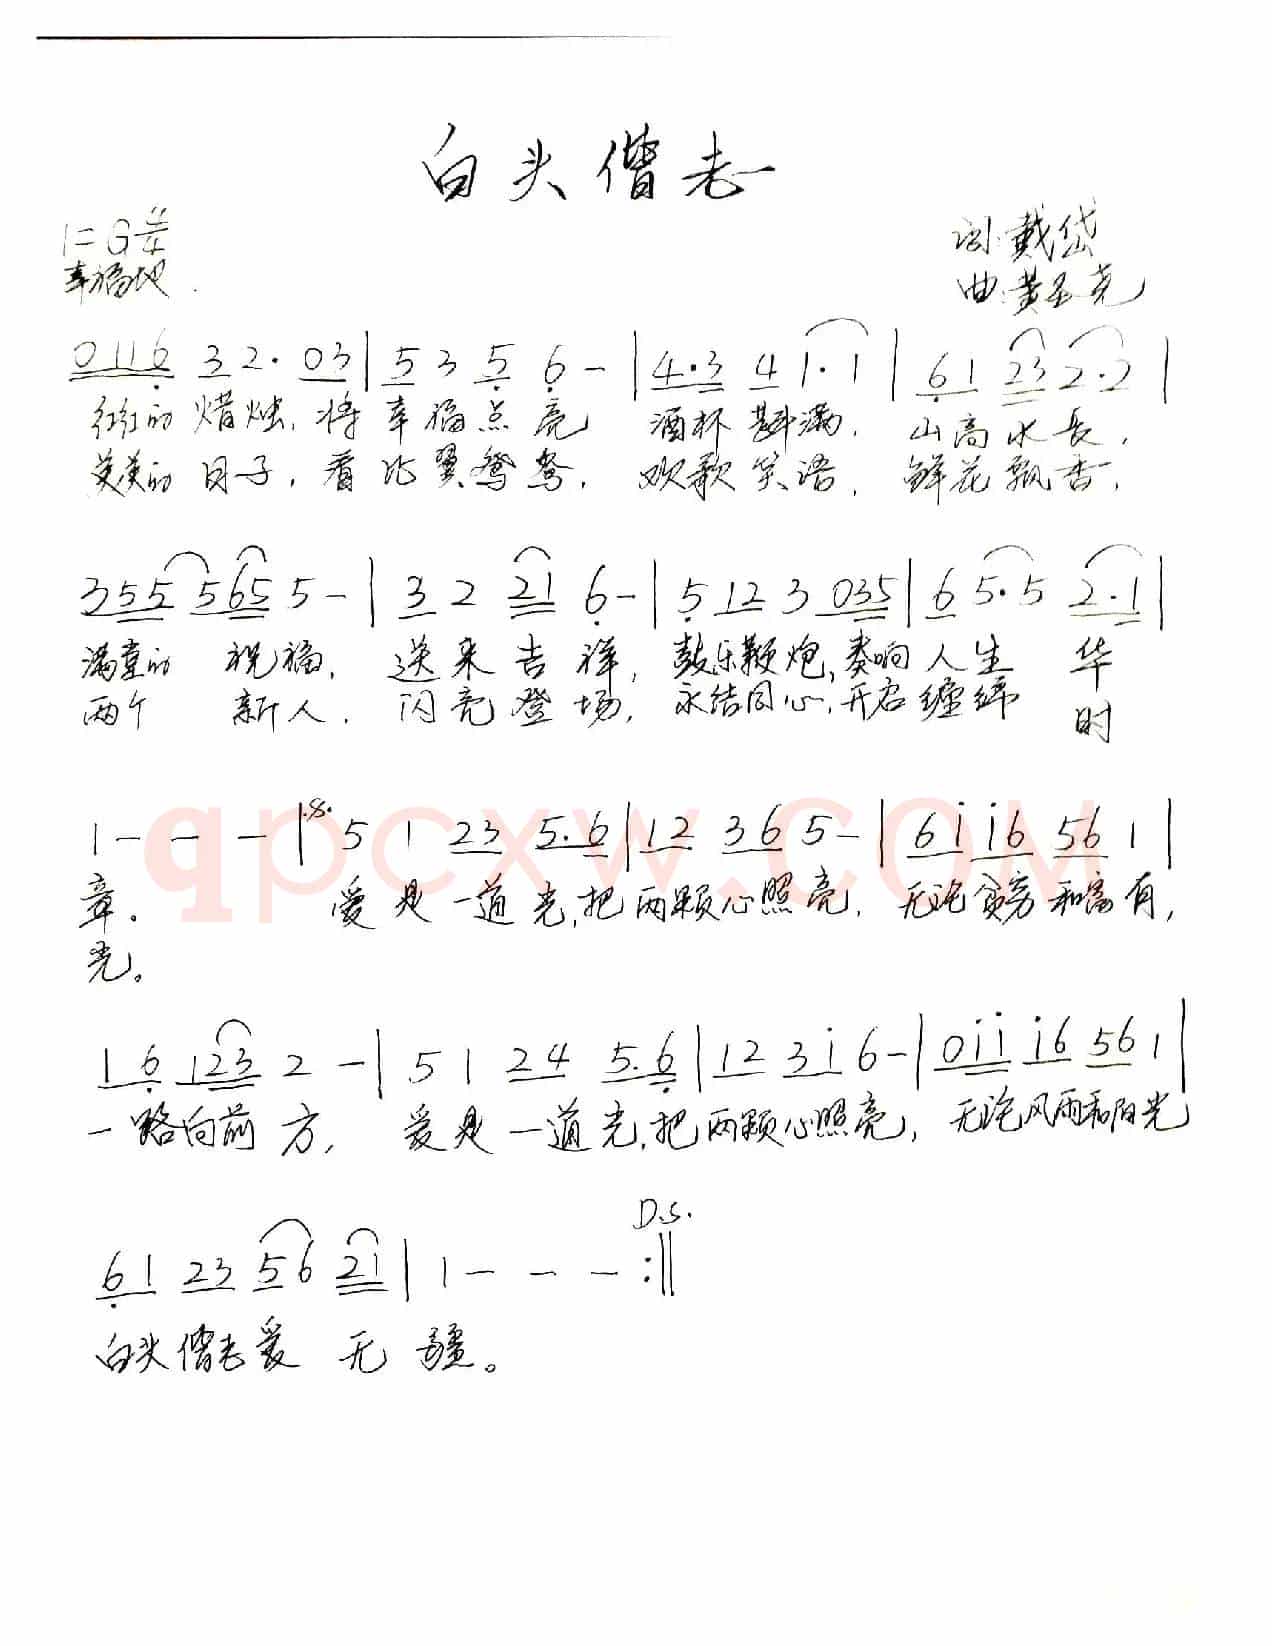 白头偕老
1=G 4/4
幸福地
词:戴岱
曲:黄圣尧
0116 32· 03 | 5 3 5 6 - | 4·3 4 1·1 | 61 23 2·2 |
红红的 烛, 将幸福点亮 酒杯斟满, 山高水长,
美美的日子, 看比翼鸳鸯, 欢歌笑语, 鲜花飘香,
355 565 5 - | 3 2 21 6 - | 5 12 3 035 | 6 5·5 2·1 |
满堂的 祝福, 送来吉祥, 鼓乐鞭炮,奏响人生 华
两个 新人, 闪亮登场, 永结同心,开启缠绵 时
1 - - - | 5 1 23 5·6 | 12 36 5 - | 61 16 56 1 |
qpcxw.COM
章. 爱是一道光,把两颗心照亮, 无论贫穷和富有,
光。
16 123 2 - | 5 1 24 5·6 | 12 31 6 - | 011 16 56 1 |
一路向前方, 爱是一道光,把两颗心照亮, 无论风雨和阳光
D.S.
61 23 56 21 | 1 - - - :||
白头偕老爱 无 疆。